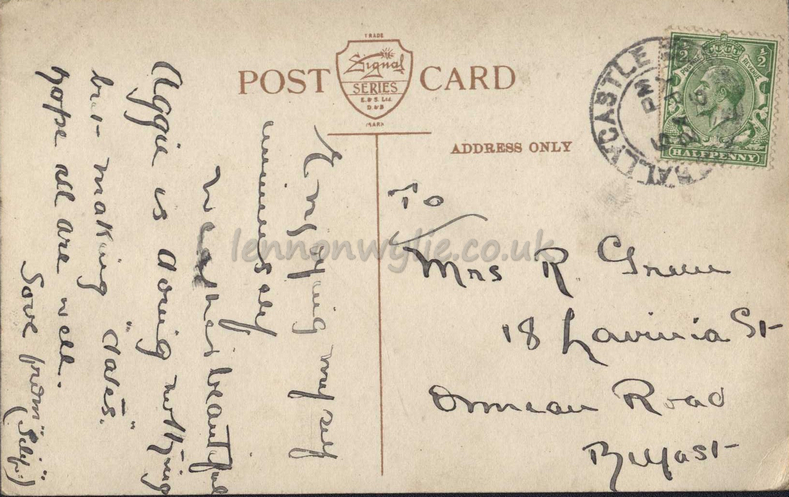 TRADE
Signal
SERIES
E. & S. Ltd.
D. & B
MARK
POST CARD
ADDRESS ONLY
BALLYCASTLE
PM
HALFPENNY
To
Mrs R Green
18 Lavinia St
Ormeau Road
Belfast
Enjoying myself
immensely
weather beautiful
Aggie is doing nothing
but making
"dates".
hope all are well.
Love from
lennonwylie.co.uk